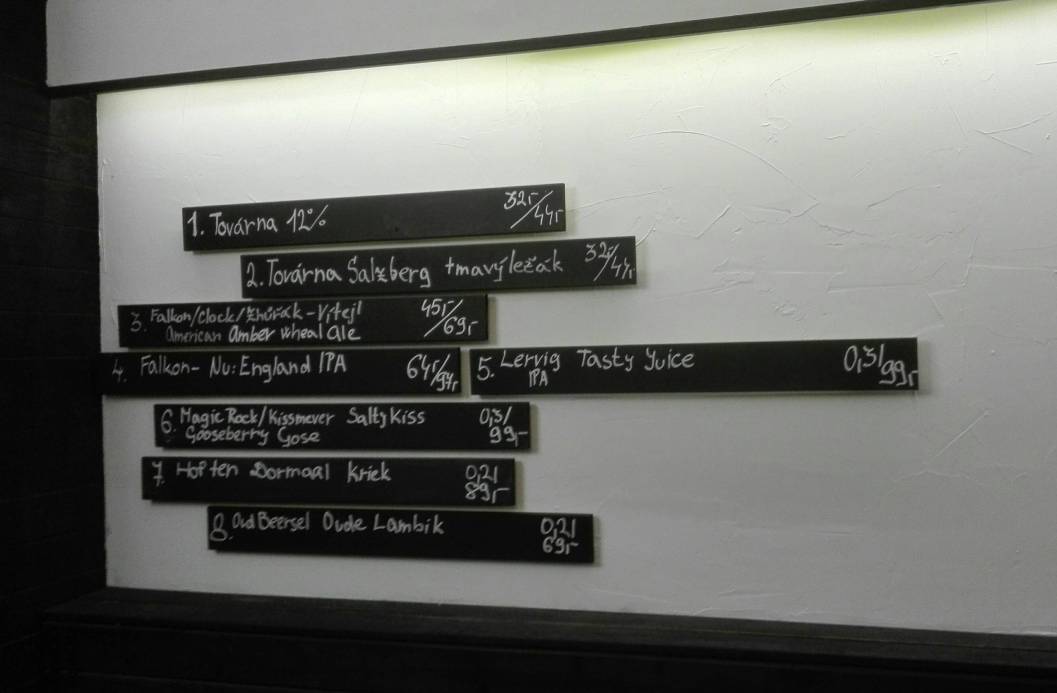 1. Továrna 12% 32,-/44,-
2. Továrna Salzberg tmavý ležák 32,-/44,-
3. Falkon/Clock/Zhůřák - Vítej!
American Amber Wheat Ale 45,-/69,-
4. Falkon - Nu:England IPA 64,-/94,-
5. Lervig Tasty Juice 0,3l/
IPA 99,-
6. Magic Rock/Kissmeyer Salty Kiss 0,3/
Gooseberry Gose 99,-
7. Hof ten Dormaal Kriek 0,2l
89,-
8. Oud Beersel Oude Lambik 0,2l
69,-